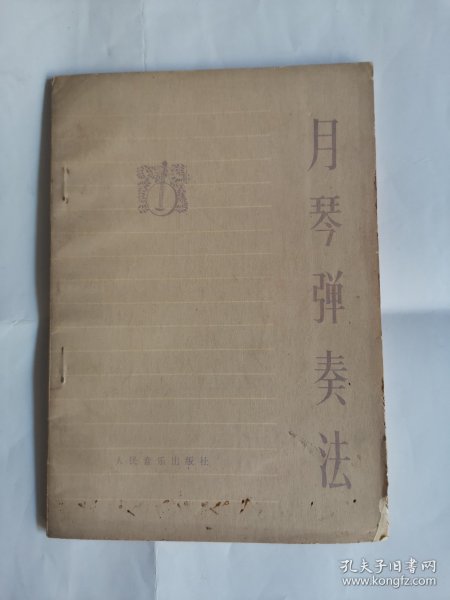 月琴弹奏法
人民音乐出版社
孔夫子旧书网
www.kongfz.com